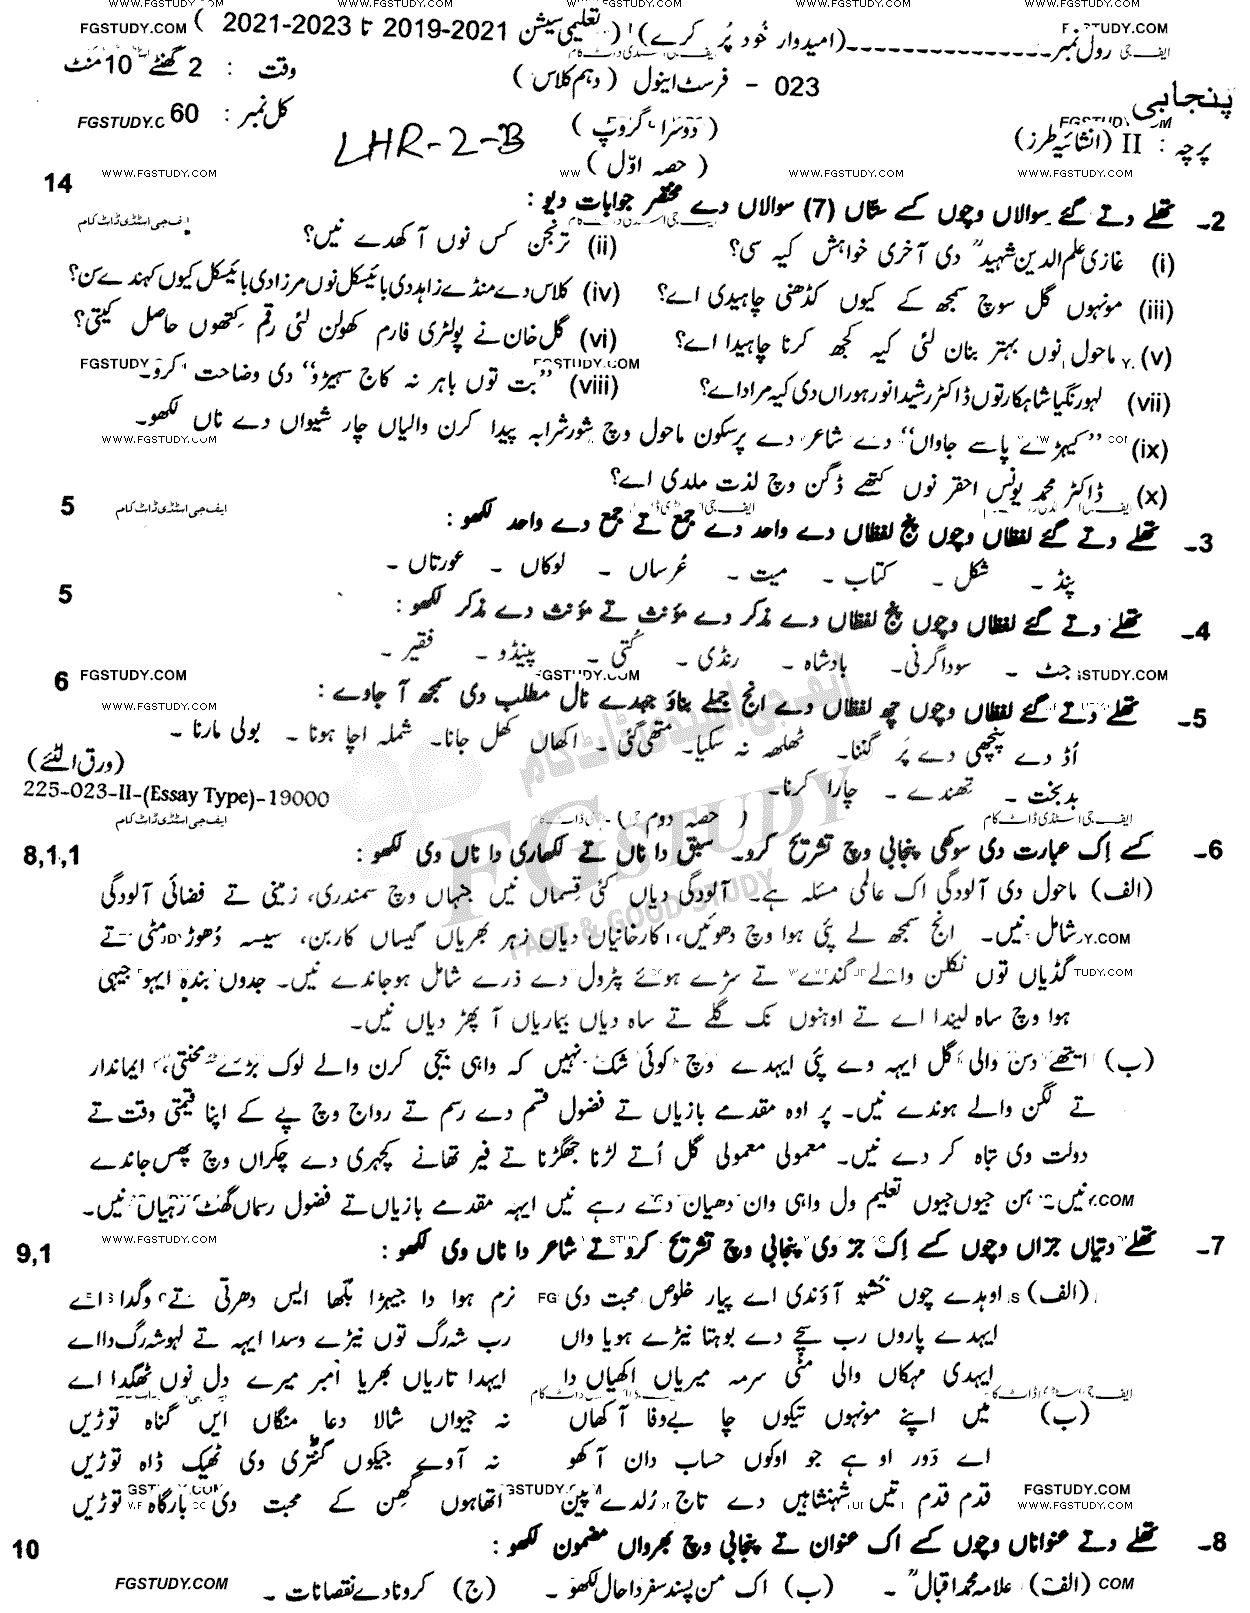 WWW.FGSTUDY.COM WWW.FGSTUDY.COM WWW.FGSTUDY.COM WWW.FGSTUDY.COM
رول نمبر ـ (امیدوار خود پُر کرے) (تعلیمی سیشن 2021-2019 تا 2023-2021)
پنجابی 023 - فرسٹ اینول (دہم کلاس) وقت : 2 گھنٹے 10 منٹ
پرچہ : II (انشائیہ طرز) (دوسرا گروپ) کل نمبر : 60
LHR-2-B
(حصہ اوّل)
2- تھلے دتے گئے سوالاں وچوں کسے ستاں (7) سوالاں دے مختصر جوابات دیو : 14
(i) غازی علم الدین شہیدؒ دی آخری خواہش کیہ سی؟ (ii) ترنجن کس نوں آکھدے نیں؟
(iii) مونہوں گل سوچ سمجھ کے کیوں کڈھنی چاہیدی اے؟ (iv) کلاس دے منڈے زاہد دی بائیسکل نوں مرزا دی بائیسکل کیوں کہندے سن؟
(v) ماحول نوں بہتر بنان لئی کیہ کجھ کرنا چاہیدا اے؟ (vi) گل خان نے پولٹری فارم کھولن لئی رقم کتھوں حاصل کیتی؟
(vii) لہو رنگیا شاہکار توں ڈاکٹر رشید انور ہوراں دی کیہ مراد اے؟ (viii) "بت توں باہر نہ کاج سہیڑو" دی وضاحت کرو۔
(ix) "کیہڑے پاسے جاواں" دے شاعر دے پرسکون ماحول وچ شور شرابہ پیدا کرن والیاں چار شیواں دے ناں لکھو۔
(x) ڈاکٹر محمد یونس احقر نوں کتھے ڈگن وچ لذت ملدی اے؟
3- تھلے دتے گئے لفظاں وچوں پنج لفظاں دے واحد دے جمع تے جمع دے واحد لکھو : 5
پنڈ - شکل - کتاب - میت - عُرساں - لوکاں - عورتاں -
4- تھلے دتے گئے لفظاں وچوں پنج لفظاں دے مذکر دے مؤنث تے مؤنث دے مذکر لکھو : 5
جٹ - سوداگرنی - بادشاہ - رنڈی - کُتی - پینڈو - فقیر -
5- تھلے دتے گئے لفظاں وچوں چھ لفظاں دے انج جملے بناؤ جیہدے نال مطلب دی سمجھ آ جاوے : 6
اُڈ دے پنچھی دے پَر گننا - ٹھلھ نہ سکیا - متھی گئی - اکھاں کھل جانا - شملہ اچا ہونا - بولی مارنا -
بدبخت - تھندے - چارا کرنا -
(ورق الٹئے)
225-023-II-(Essay Type)-19000
(حصہ دوم)
6- کسے اِک عبارت دی سوکھی پنجابی وچ تشریح کرو۔ سبق دا ناں تے لکھاری دا ناں وی لکھو : 8,1,1
(الف) ماحول دی آلودگی اک عالمی مسئلہ ہے۔ آلودگی دیاں کئی قسماں نیں جہاں وچ سمندری، زمینی تے فضائی آلودگی
شامل نیں۔ انج سمجھ لے پئی ہوا وچ دھوئیں، کارخانیاں دیاں زہر بھریاں گیساں کاربن، سیسہ دُھوڑ مٹی تے
گڈیاں توں نکلن والے گندے تے سڑے ہوئے پٹرول دے ذرے شامل ہوجاندے نیں۔ جدوں بندہ ایہو جیہی
ہوا وچ ساہ لیندا اے تے اوہنوں نک گلے تے ساہ دیاں بیماریاں آ پھڑ دیاں نیں۔
(ب) ایتھے دسن والی گل ایہہ وے پئی ایہدے وچ کوئی شک نہیں کہ واہی بیجی کرن والے لوک بڑے محنتی، ایماندار
تے لگن والے ہوندے نیں۔ پر اوہ مقدمے بازیاں تے فضول قسم دے رسم تے رواج وچ پے کے اپنا قیمتی وقت تے
دولت دی تباہ کر دے نیں۔ معمولی معمولی گل اُتے لڑنا جھگڑنا تے فیر تھانے کچہری دے چکراں وچ پھس جاندے
نیں۔ ہن جیوں جیوں تعلیم ول واہی وان دھیان دے رہے نیں ایہہ مقدمے بازیاں تے فضول رسماں گھٹ رہیاں نیں۔
7- تھلے دتیاں جزاں وچوں کسے اِک جز دی پنجابی وچ تشریح کرو تے شاعر دا ناں وی لکھو : 9,1
(الف) اوہدے چوں خشبو آؤندی اے پیار خلوص محبت دی نرم ہوا دا جیہڑا بلھا ایس دھرتی تے وگدا اے
ایہدے پاروں رب سچے دے بوہتا نیڑے ہویا واں رب شہ رگ توں نیڑے وسدا ایہہ تے لہو شہ رگ دا اے
ایہدی مہکاں والی مٹی سرمہ میریاں اکھیاں دا ایہدا تاریاں بھریا امبر میرے دل نوں ٹھگدا اے
(ب) میں اپنے مونہوں تیکوں چا بے وفا آکھاں نہ جیواں شالا دعا منگاں ایں گناہ توڑیں
اے دَور او ہے جو اوکوں حساب دان آکھو نہ آوے جیکوں گنتری وی ٹھیک ڈاہ توڑیں
قدم قدم تیں شہنشاہیں دے تاج رُلدے پین اتھاہوں گھِن کے محبت دی بارگاہ توڑیں
8- تھلے دتے عنواناں وچوں کسے اک عنوان تے پنجابی وچ بھرواں مضمون لکھو : 10
(الف) علامہ محمد اقبالؒ - (ب) اک من پسند سفر دا حال لکھو - (ج) کرونا دے نقصانات -
FGSTUDY.COM